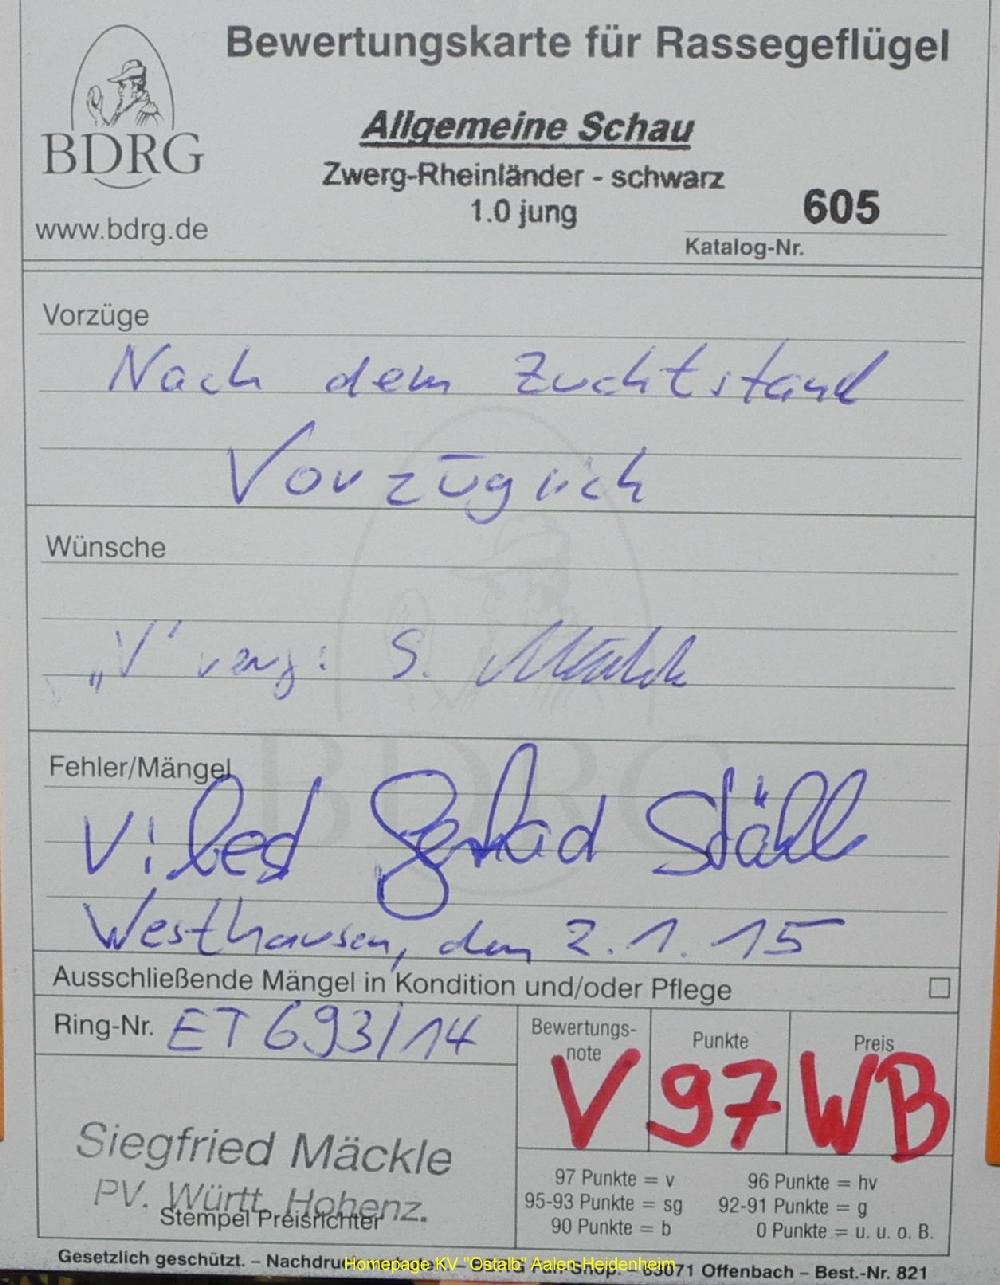 Bewertungskarte für Rassegeflügel
BDRG
www.bdrg.de
Allgemeine Schau
Zwerg-Rheinländer - schwarz
1.0 jung
605
Katalog-Nr.
Vorzüge
Nach dem Zuchtstand
Vorzüglich
Wünsche
"V" verg: S.
BDRG
Fehler/Mängel
V: Gerhad Ställ
Westhausen, den 2.1.15
Ausschließende Mängel in Kondition und/oder Pflege
Ring-Nr. ET 693/14
Bewertungs-
note
Punkte
Preis
V 97 WB
Siegfried Mäckle
PV. Württ. Hohenz.
Stempel Preisrichter
97 Punkte = v 96 Punkte = hv
95-93 Punkte = sg 92-91 Punkte = g
90 Punkte = b 0 Punkte = u. u. o. B.
Gesetzlich geschützt. – 63071 Offenbach – Best.-Nr. 821
Homepage KV "Ostalb" Aalen-Heidenheim